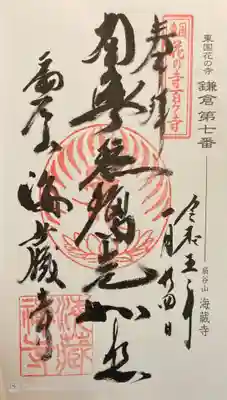 東国花の寺
鎌倉第七番
扇谷山 海蔵寺
東国花の寺百ヶ寺
奉拝
令和五年
一月廿四日
南無薬師瑠璃光如来
扇谷山
海蔵寺